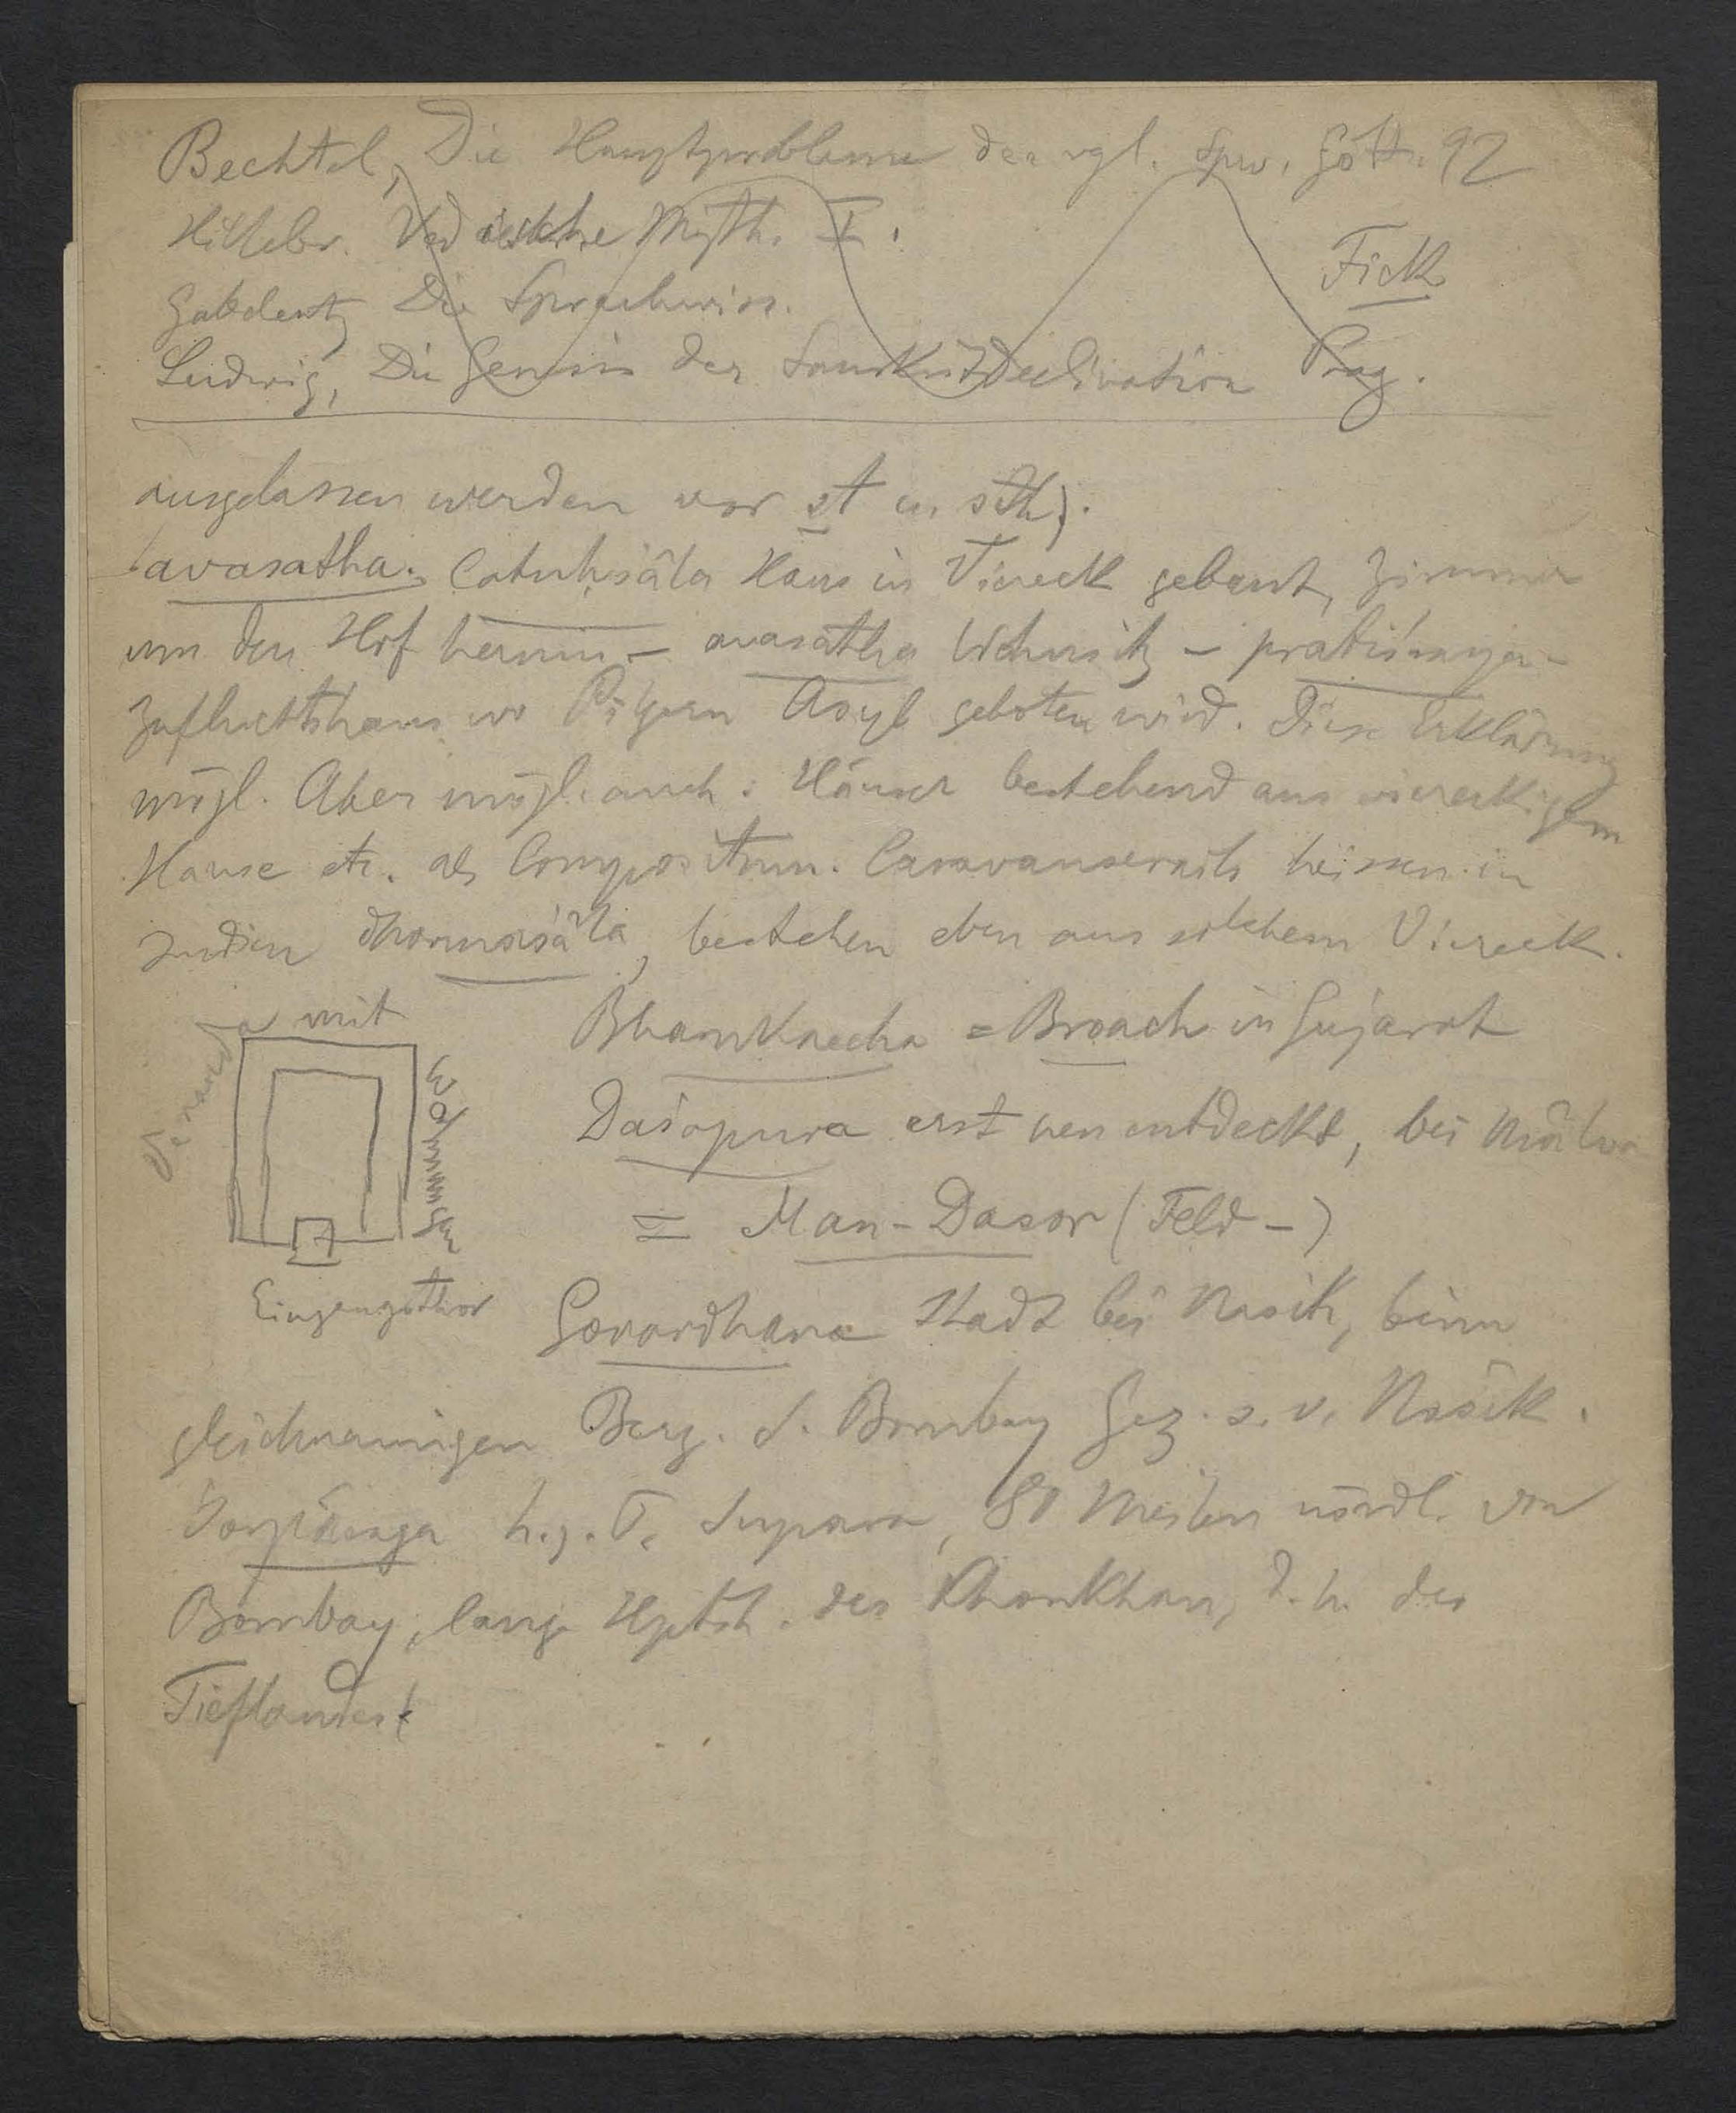 Bechtel, Die Hauptprobleme der vgl. Spw. Gött. 92
Hillebr. Vedische Myth. I.
Fick
Gabelentz Die Sprachwiss.
Ludwig, Die Genesis der Sanskritdeclination Prag.
ausgelassen werden vor st u. sth).
avasatha. Catuhśâla Haus in Viereck gebaut, Zimmer
um den Hof herum – avasatha Wohnsitz – pratiśraya –
Zufluchtshaus wo Pilgern Asyl geboten wird. Diese Erklärung
mögl. Aber mögl. auch: Häuser bestehend aus viereckigem
Hause etc. als Compositum. Caravanserails heissen in
Indien dharmaśâla, bestehen eben aus solchem Viereck.
Veranda mit
Wohnräumen
Eingangsthor
Bharukaccha = Broach in Gujarat
Daśapura erst neu entdeckt, bei Mâlwa
= Man-Dasor (Feld –)
Govardhana Stadt bei Nasik, beim
gleichnamigen Berg. S. Bombay Gaz. s. v. Nasik.
h. z. T. Supara, 80 Meilen nördl. von
Bombay, lang Hptst. des Khonkhan, d. h. des
Tieflandes